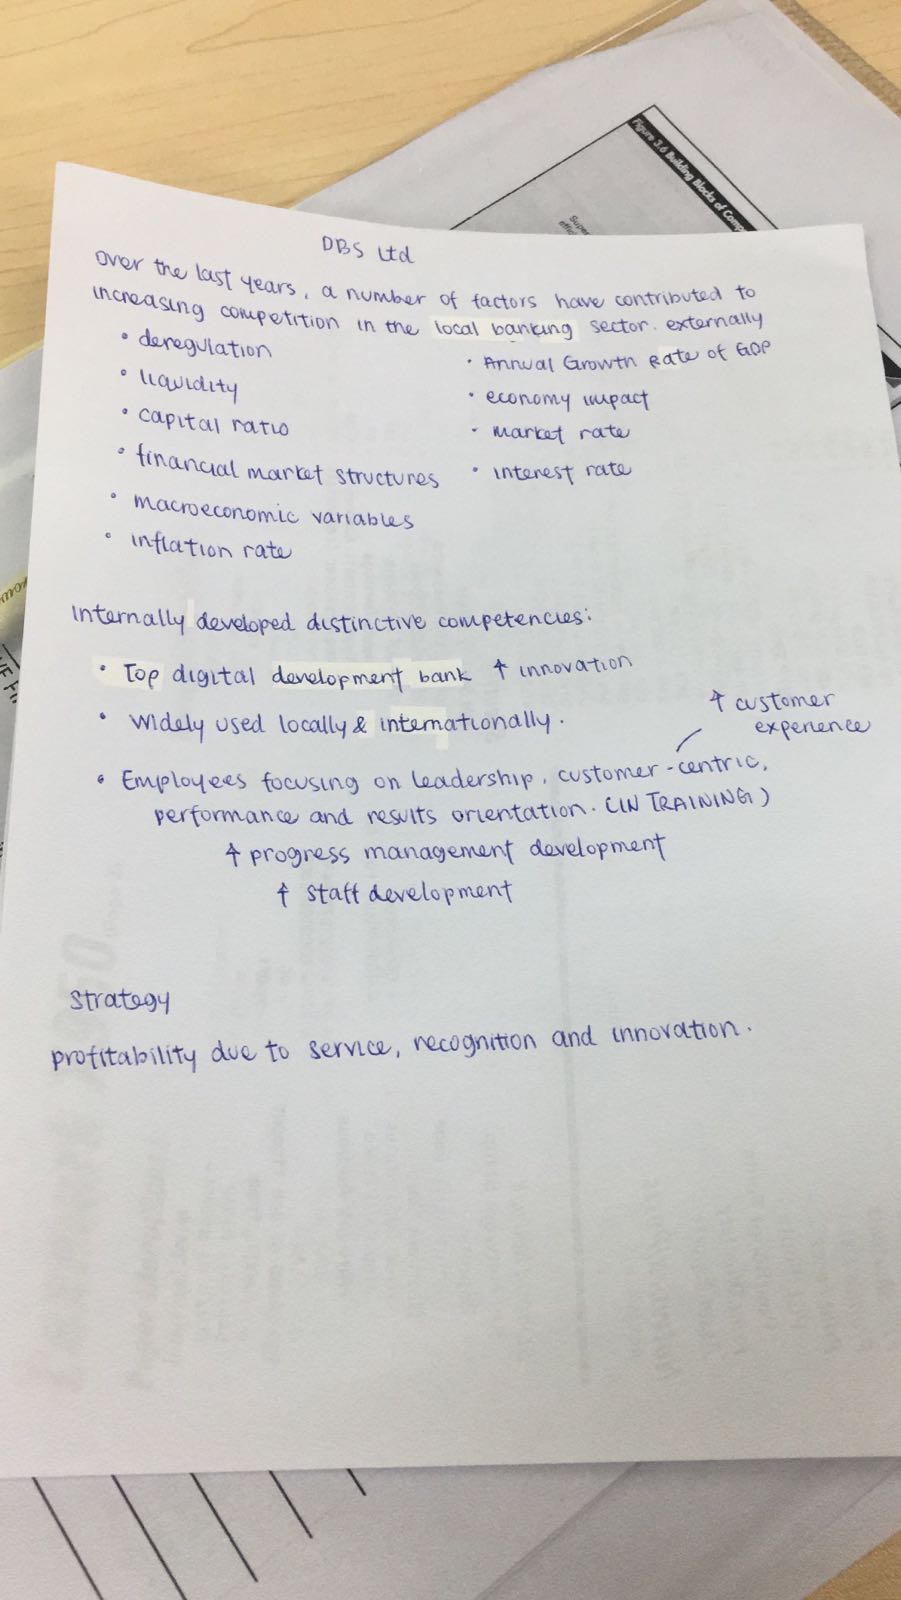 Figure 3.6 Building Blocks of
DBS Ltd
Over the last years, a number of factors have contributed to
increasing competition in the local banking sector. externally
• deregulation
• liquidity
• capital ratio
• financial market structures
• macroeconomic variables
• inflation rate
• Annual Growth Rate of GDP
• economy impact
• market rate
• interest rate
Internally developed distinctive competencies:
• Top digital development bank ↑ innovation
• Widely used locally & internationally.
↑ customer
experience
• Employees focusing on leadership, customer-centric,
performance and results orientation. (IN TRAINING)
↑ progress management development
↑ staff development
Strategy
profitability due to service, recognition and innovation.